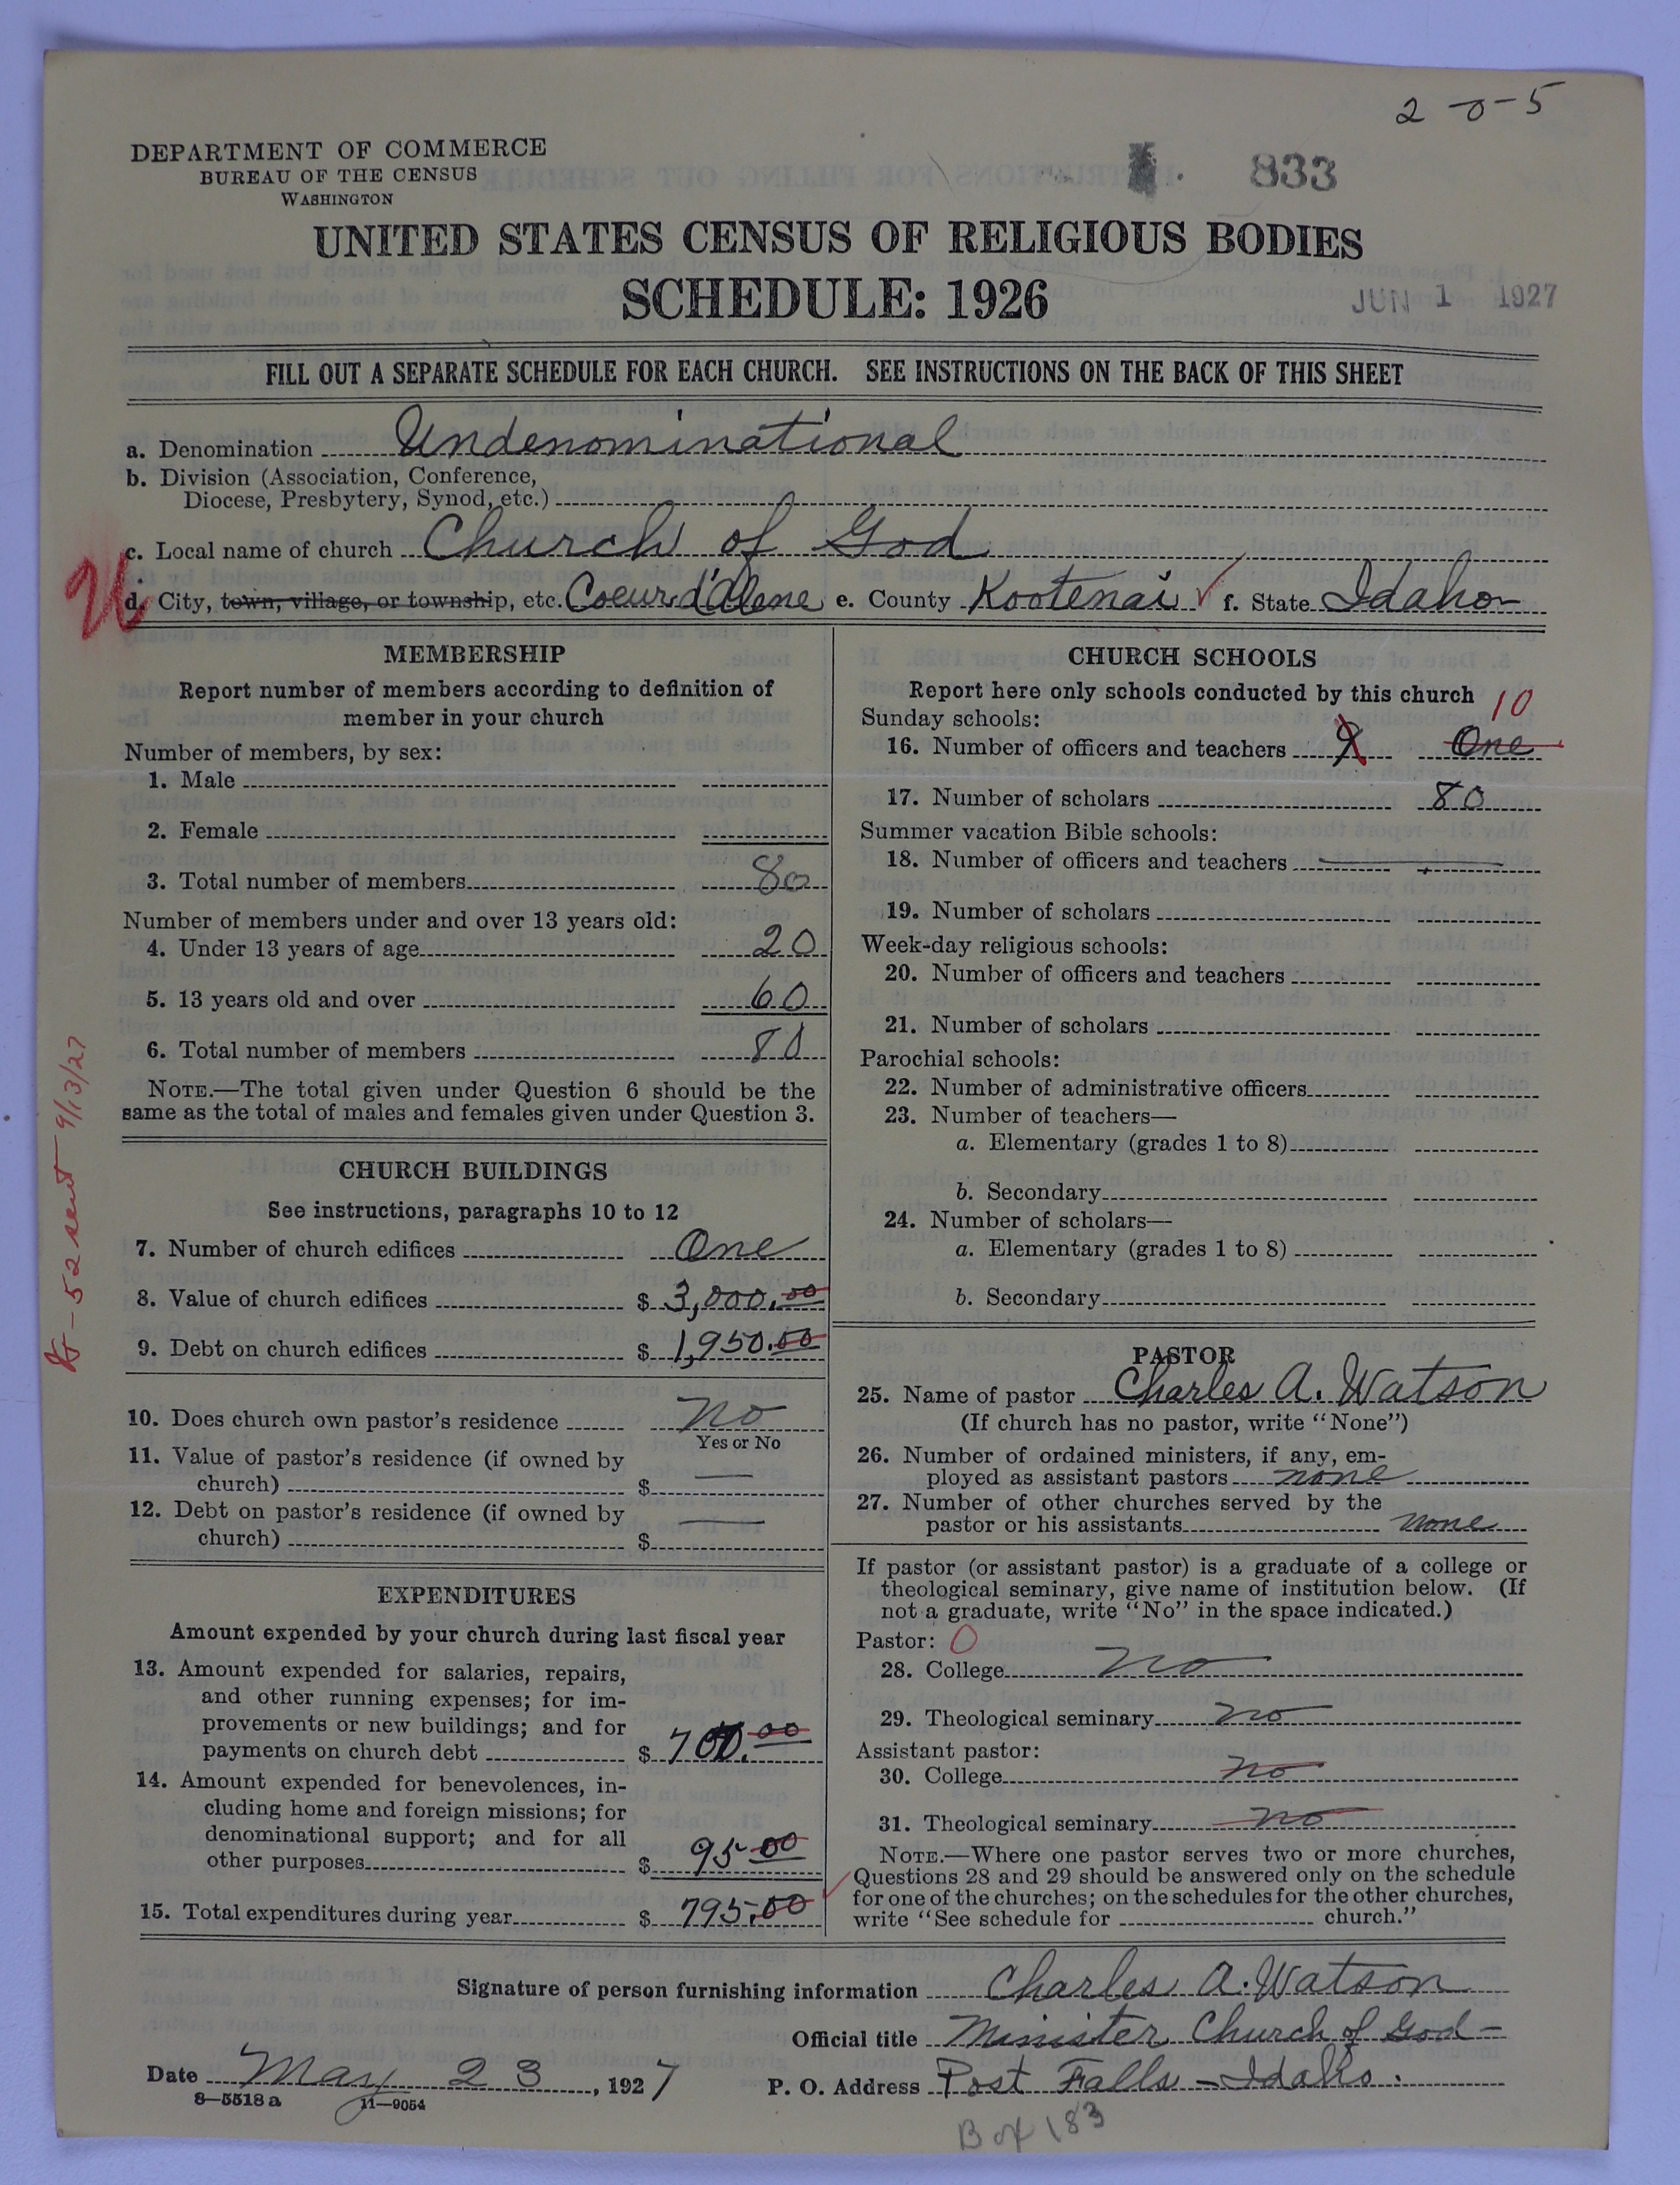 2-0-5
DEPARTMENT OF COMMERCE
BUREAU OF THE CENSUS
WASHINGTON
833
UNITED STATES CENSUS OF RELIGIOUS BODIES
SCHEDULE: 1926
JUN 1 1927
FILL OUT A SEPARATE SCHEDULE FOR EACH CHURCH. SEE INSTRUCTIONS ON THE BACK OF THIS SHEET
a. Denomination Undenominational
b. Division (Association, Conference,
Diocese, Presbytery, Synod, etc.)
c. Local name of church Church of God
d. City, town, village, or township, etc. Coeur d'Alene e. County Kootenai f. State Idaho
MEMBERSHIP
Report number of members according to definition of
member in your church
Number of members, by sex:
1. Male
2. Female
3. Total number of members 80
Number of members under and over 13 years old:
4. Under 13 years of age 20
5. 13 years old and over 60
6. Total number of members 80
NOTE.—The total given under Question 6 should be the
same as the total of males and females given under Question 3.
CHURCH BUILDINGS
See instructions, paragraphs 10 to 12
7. Number of church edifices One
8. Value of church edifices $ 3,000.00
9. Debt on church edifices $ 1,950.00
10. Does church own pastor's residence No
Yes or No
11. Value of pastor's residence (if owned by
church) $ —
12. Debt on pastor's residence (if owned by
church) $ —
EXPENDITURES
Amount expended by your church during last fiscal year
13. Amount expended for salaries, repairs,
and other running expenses; for im-
provements or new buildings; and for
payments on church debt $ 700.00
14. Amount expended for benevolences, in-
cluding home and foreign missions; for
denominational support; and for all
other purposes $ 95.00
15. Total expenditures during year $ 795.00
CHURCH SCHOOLS
Report here only schools conducted by this church
10
Sunday schools:
16. Number of officers and teachers 9 One
17. Number of scholars 80
Summer vacation Bible schools:
18. Number of officers and teachers
19. Number of scholars
Week-day religious schools:
20. Number of officers and teachers
21. Number of scholars
Parochial schools:
22. Number of administrative officers
23. Number of teachers—
a. Elementary (grades 1 to 8)
b. Secondary
24. Number of scholars—
a. Elementary (grades 1 to 8)
b. Secondary
PASTOR
25. Name of pastor Charles A. Watson
(If church has no pastor, write "None")
26. Number of ordained ministers, if any, em-
ployed as assistant pastors none
27. Number of other churches served by the
pastor or his assistants none
If pastor (or assistant pastor) is a graduate of a college or
theological seminary, give name of institution below. (If
not a graduate, write "No" in the space indicated.)
Pastor: 0
28. College No
29. Theological seminary no
Assistant pastor:
30. College no
31. Theological seminary no
NOTE.—Where one pastor serves two or more churches,
Questions 28 and 29 should be answered only on the schedule
for one of the churches; on the schedules for the other churches,
write "See schedule for church."
Signature of person furnishing information Charles A. Watson
Official title Minister Church of God-
Date May 23, 1927 P. O. Address Post Falls - Idaho.
8—5518a 11—9054
Box 183
52 sent 9/13/27